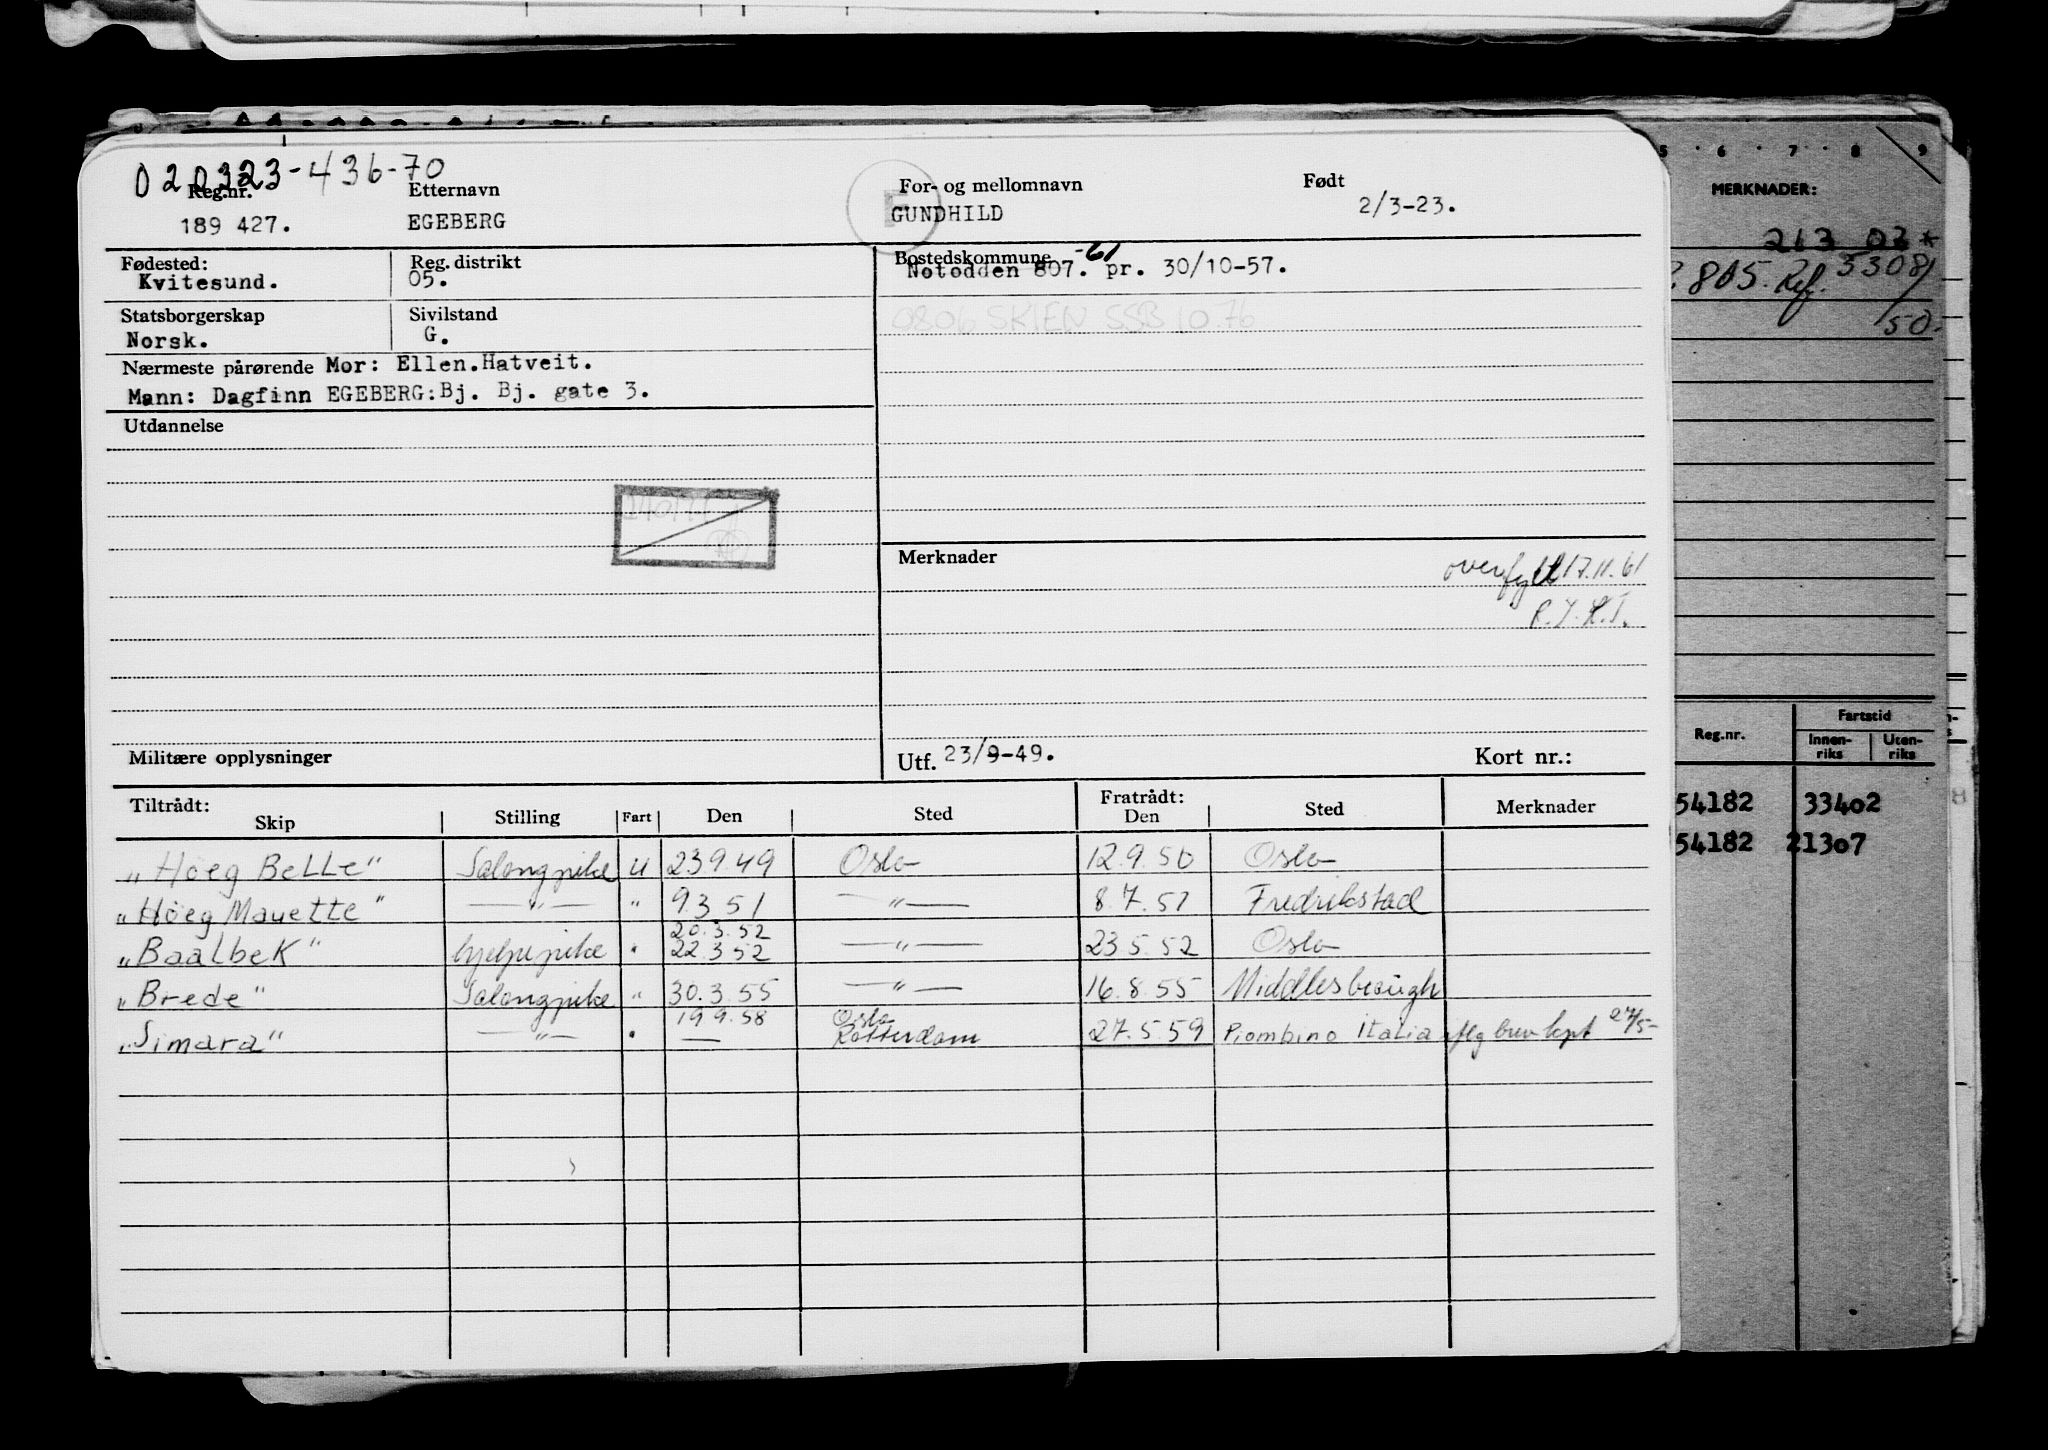 020323-436-70
Reg.nr. Etternavn For- og mellomnavn Født
189 427. EGEBERG GUNDHILD 2/3-23.
F
Fødested: Reg. distrikt Bostedskommune -61
Kvitesund. 05. Notodden 807. pr. 30/10-57.
Statsborgerskap Sivilstand 0806 SKIEN SSB 10.76
Norsk. G.
Nærmeste pårørende Mor: Ellen.Hatveit.
Mann: Dagfinn EGEBERG:Bj. Bj. gate 3.
Utdannelse
Merknader overfylt 17.11.61
Militære opplysninger Utf. 23/9-49. Kort nr.:
Tiltrådt: Fratrådt:
Skip Stilling Fart Den Sted Den Sted Merknader
"Höeg Belle" Salongpike U 23.9.49 Oslo 12.9.50 Oslo
"Höeg Mauette" —"— " 9.3.51 —"— 8.7.51 Fredrikstad
20.3.52
"Baalbek" hjelpepike " 22.3.52 —"— 23.5.52 Oslo
"Brede" Salongpike " 30.3.55 —"— 16.8.55 Middlesbrough
19.9.58 Oslo
"Simara" —"— " — Rotterdam 27.5.59 Piombino Italia iflg brev kpt 27/5-
5 · 6 · 7 · 8 · 9
MERKNADER:
213 02*
805. Ref. 33081/50.
Fartstid
Reg.nr. Innen-riks Uten-riks
54182 33402
54182 21307